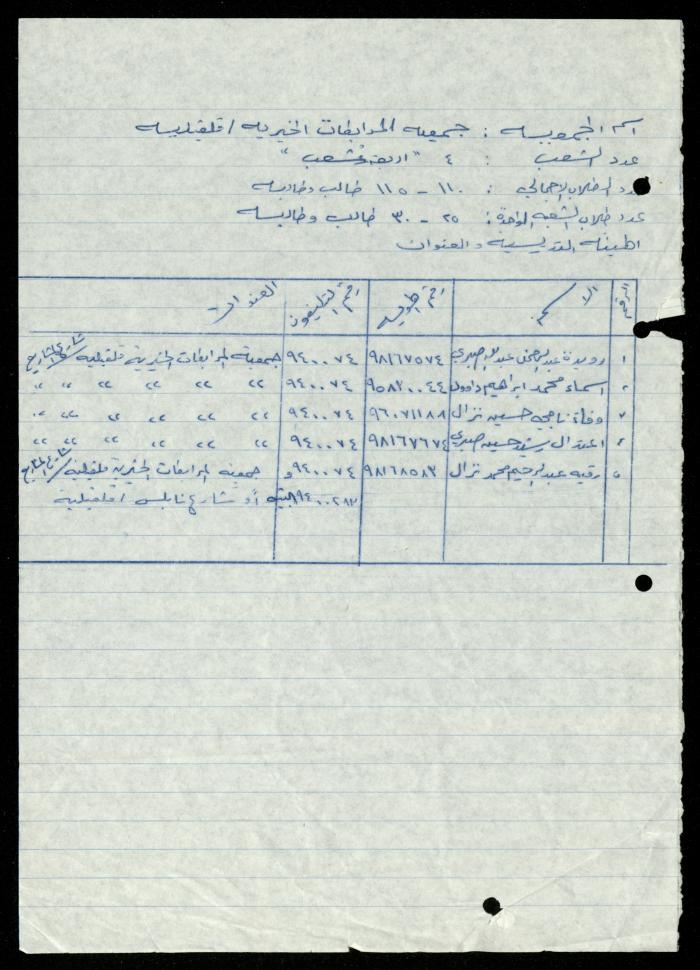 اسم الجمعية : جمعية المرابطات الخيرية / قلقيلية
عدد الشعب : ٤ " اربعة شعب "
عدد الطلاب الإجمالي : ١١٠ - ١١٥ طالب وطالبة
عدد طلاب الشعبة الواحدة : ٢٥ - ٣٠ طالب وطالبة
الهيئة التدريسية والعنوان
الرقم الاسم رقم الهوية رقم التليفون العنوان
١ رويدة عبد الرحمن عبد الله صبري ٩٨١٦٧٥٧٤ ٩٤٠٠٧٤ جمعية المرابطات الخيرية قلقيلية / شارع
٢ اسماء محمد ابراهيم داوود ٩٥٨٢٠٠٤٤ ٩٤٠٠٧٤ " " " " " "
٣ وفاء ناجي حسين نزال ٩٦٠٧١١٨٨ ٩٤٠٠٧٤ " " " " "
٤ اعتدال رشيد حسين صبري ٩٨١٦٧٦٧٤ ٩٤٠٠٧٤ " " " " " "
٥ رقيه عبد الرحيم محمد نزال ٩٨١٦٨٥٨٢ ٩٤٠٠٧٤ و جمعية المرابطات الخيرية قلقيلية / شارع
٩٤٠٠٢٨٢ البيت أو شارع نابلس / قلقيلية